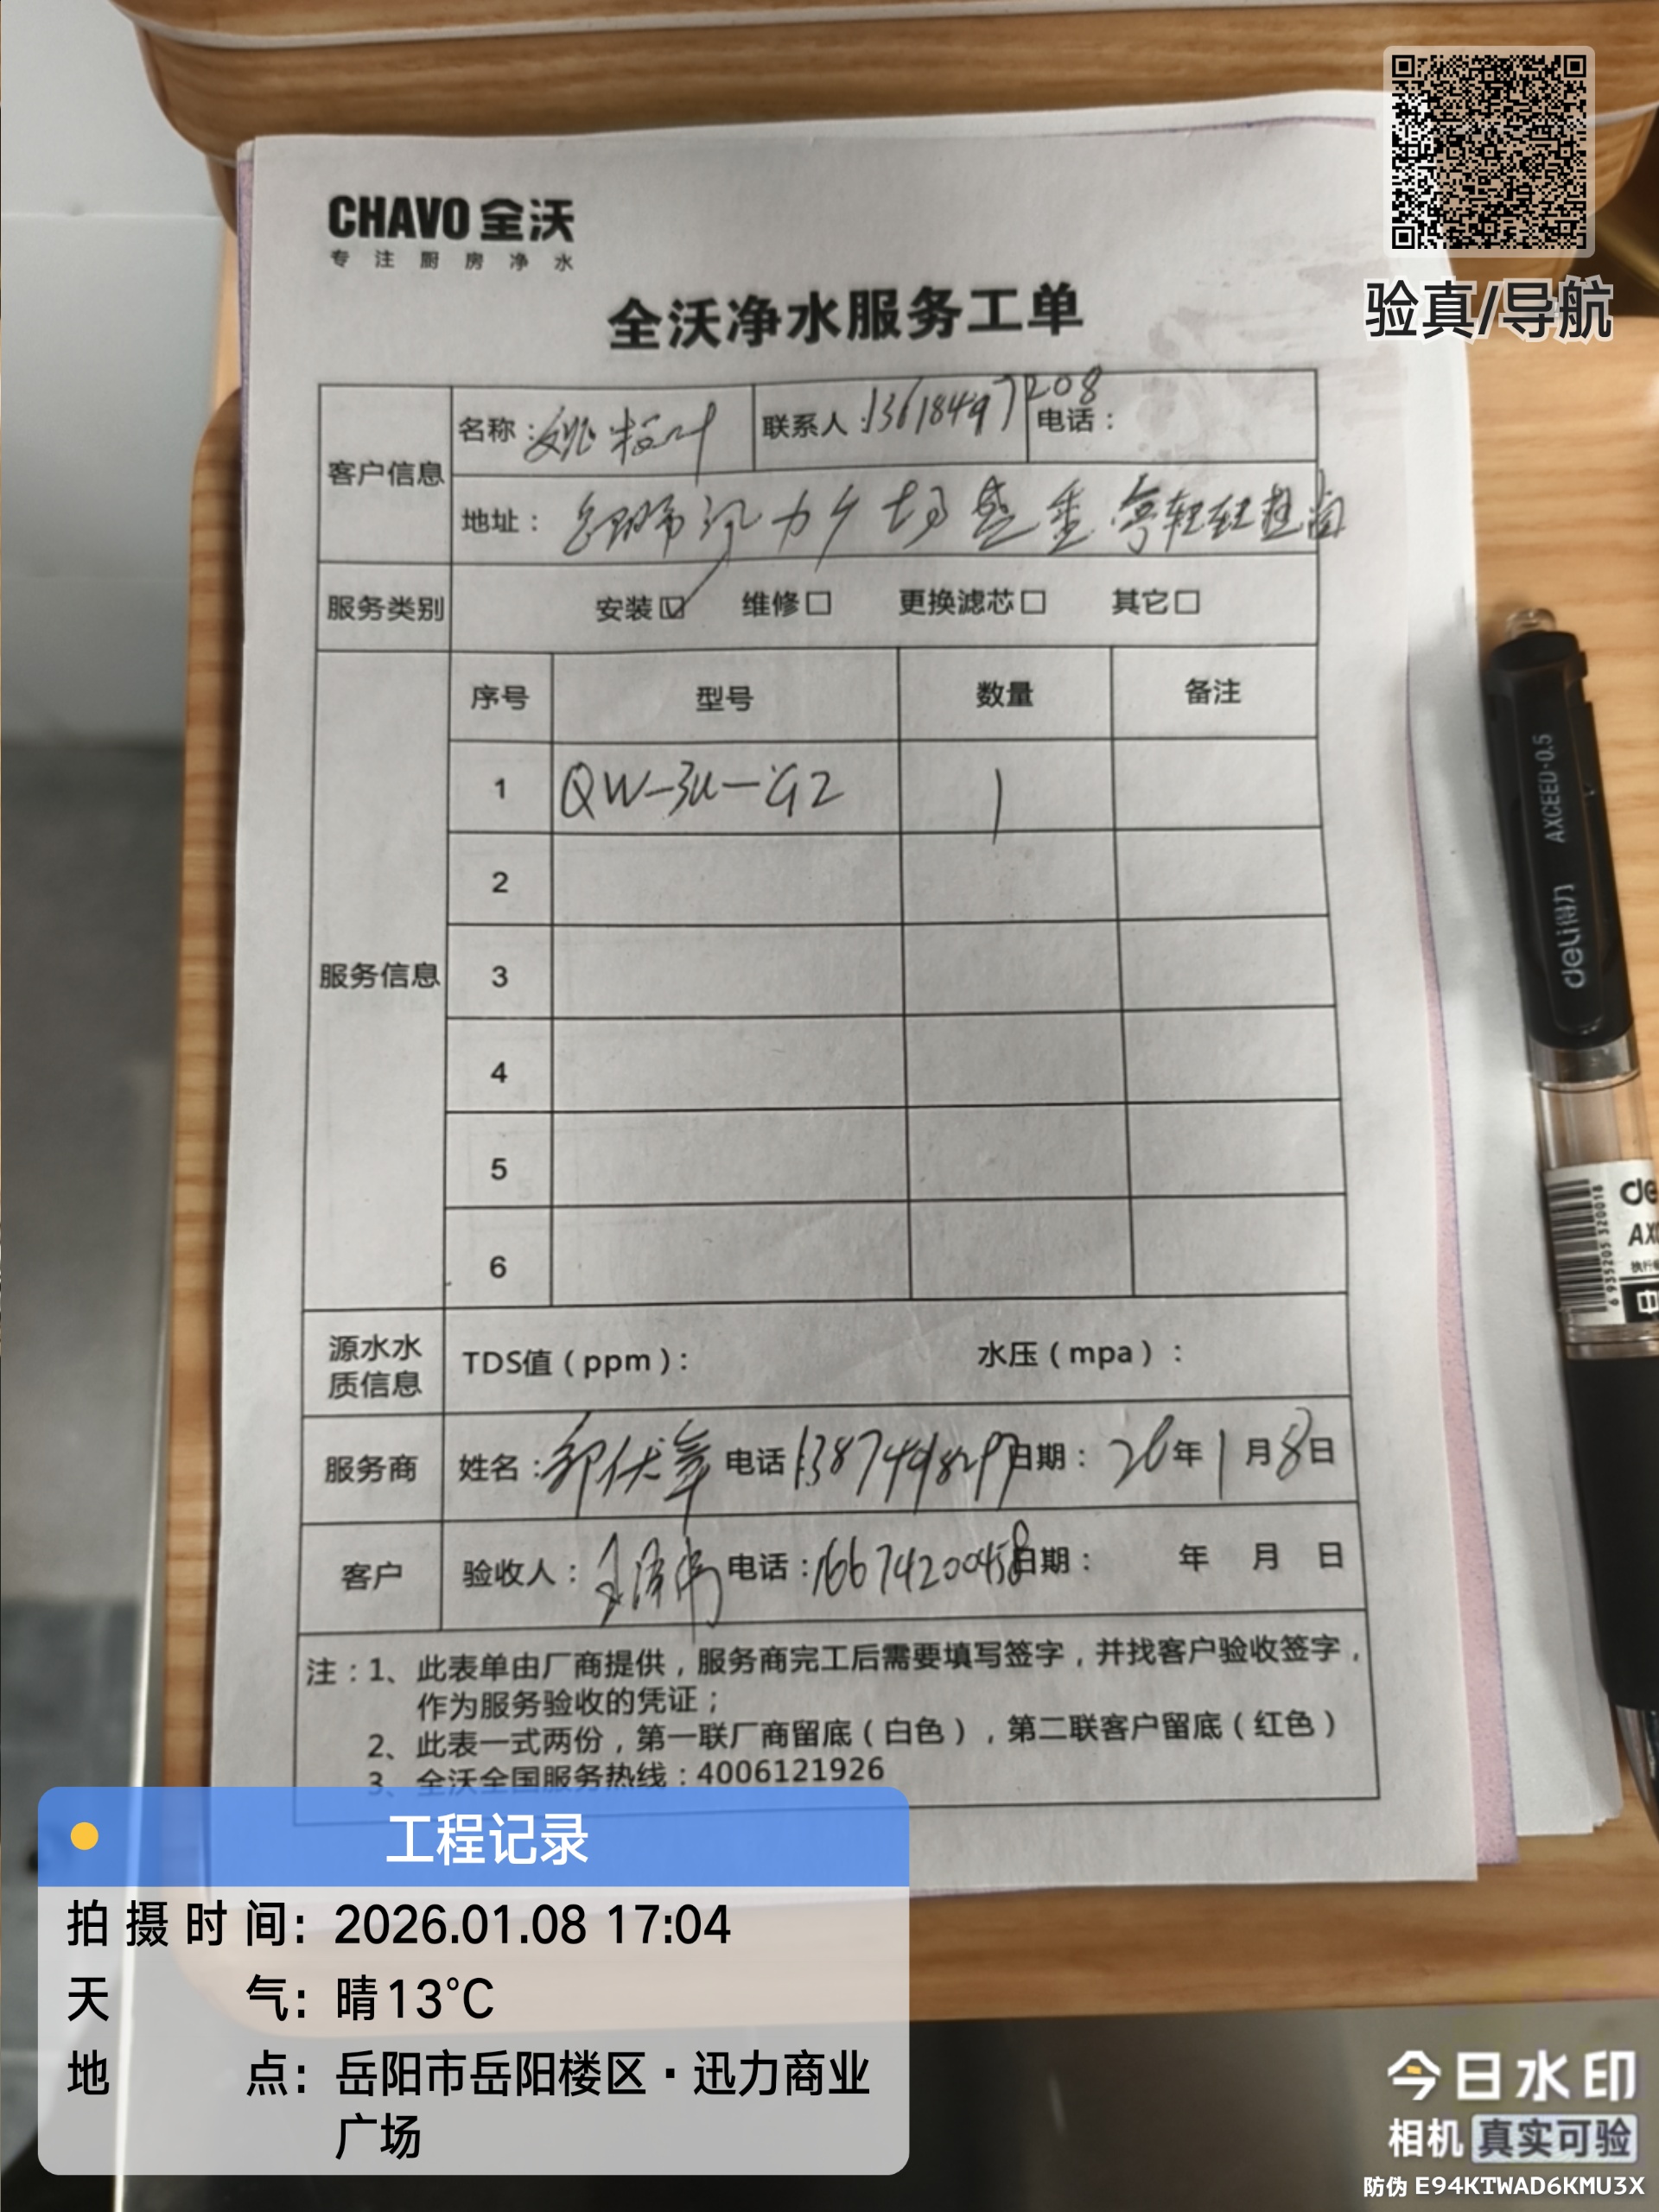 CHAVO 全沃
专注厨房净水
全沃净水服务工单
客户信息
名称： 联系人：13618497208 电话：
地址：
服务类别 安装☑ 维修□ 更换滤芯□ 其它□
服务信息
序号 型号 数量 备注
1 QW-3U-G2 1
2
3
4
5
6
源水水质信息 TDS值（ppm）： 水压（mpa）：
服务商 姓名： 电话 日期： 26年1月8日
客户 验收人： 电话：16674200458 日期： 年 月 日
注：1、此表单由厂商提供，服务商完工后需要填写签字，并找客户验收签字，
作为服务验收的凭证；
2、此表一式两份，第一联厂商留底（白色），第二联客户留底（红色）
3、全沃全国服务热线：4006121926
验真/导航
AXCEED·0.5
deli
6 935205 320018
工程记录
拍摄时间：2026.01.08 17:04
天气：晴13℃
地点：岳阳市岳阳楼区·迅力商业
广场
今日水印
相机 真实可验
防伪 E94KTWAD6KMU3X